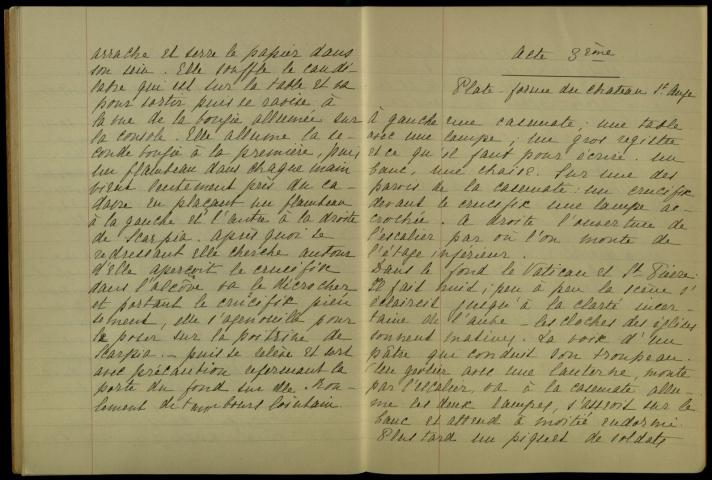 arrache et serre le papier dans
son sein. Elle souffle le candé-
labre qui est sur la table et va
pour sortir puis se ravise à
la vue de la bougie allumée sur
la console. Elle allume la se-
conde bougie à la première, puis
un flambeau dans chaque main
vient lentement près du ca-
davre en plaçant un flambeau
à la gauche et l'autre à la droite
de Scarpia. Après quoi se
redressant elle cherche autour
d'elle aperçoit le crucifix
dans l'alcôve va le décrocher
et portant le crucifix pieu
sement, elle s'agenouille pour
le poser sur la poitrine de
Scarpia – puis se relève et sort
avec précaution refermant la
porte du fond sur elle. Rou-
lement de tambours lointain.
Acte 3ème
Plate-forme du chateau St Ange
à gauche une casemate; une table
avec une lampe; un gros registre
et ce qu'il faut pour écrire. un
banc, une chaise. Sur une des
parois de la casemate: un crucifix
devant le crucifix une lampe ac-
crochée. A droite l'ouverture de
l'escalier par où l'on monte de
l'étage inférieur.
Dans le fond le Vatican et St Pierre.
Il fait nuit; peu à peu la scène s'
éclaircit jusqu'à la clarté incer-
taine de l'aube – les cloches des églises
sonnent matines. La voix d'un
pâtre qui conduit son troupeau.
Un geolier avec une lanterne, monte
par l'escalier, va à la casemate allu-
me les deux lampes, s'asseoit sur le
banc et attend à moitié endormi.
Plus tard un piquet de soldats